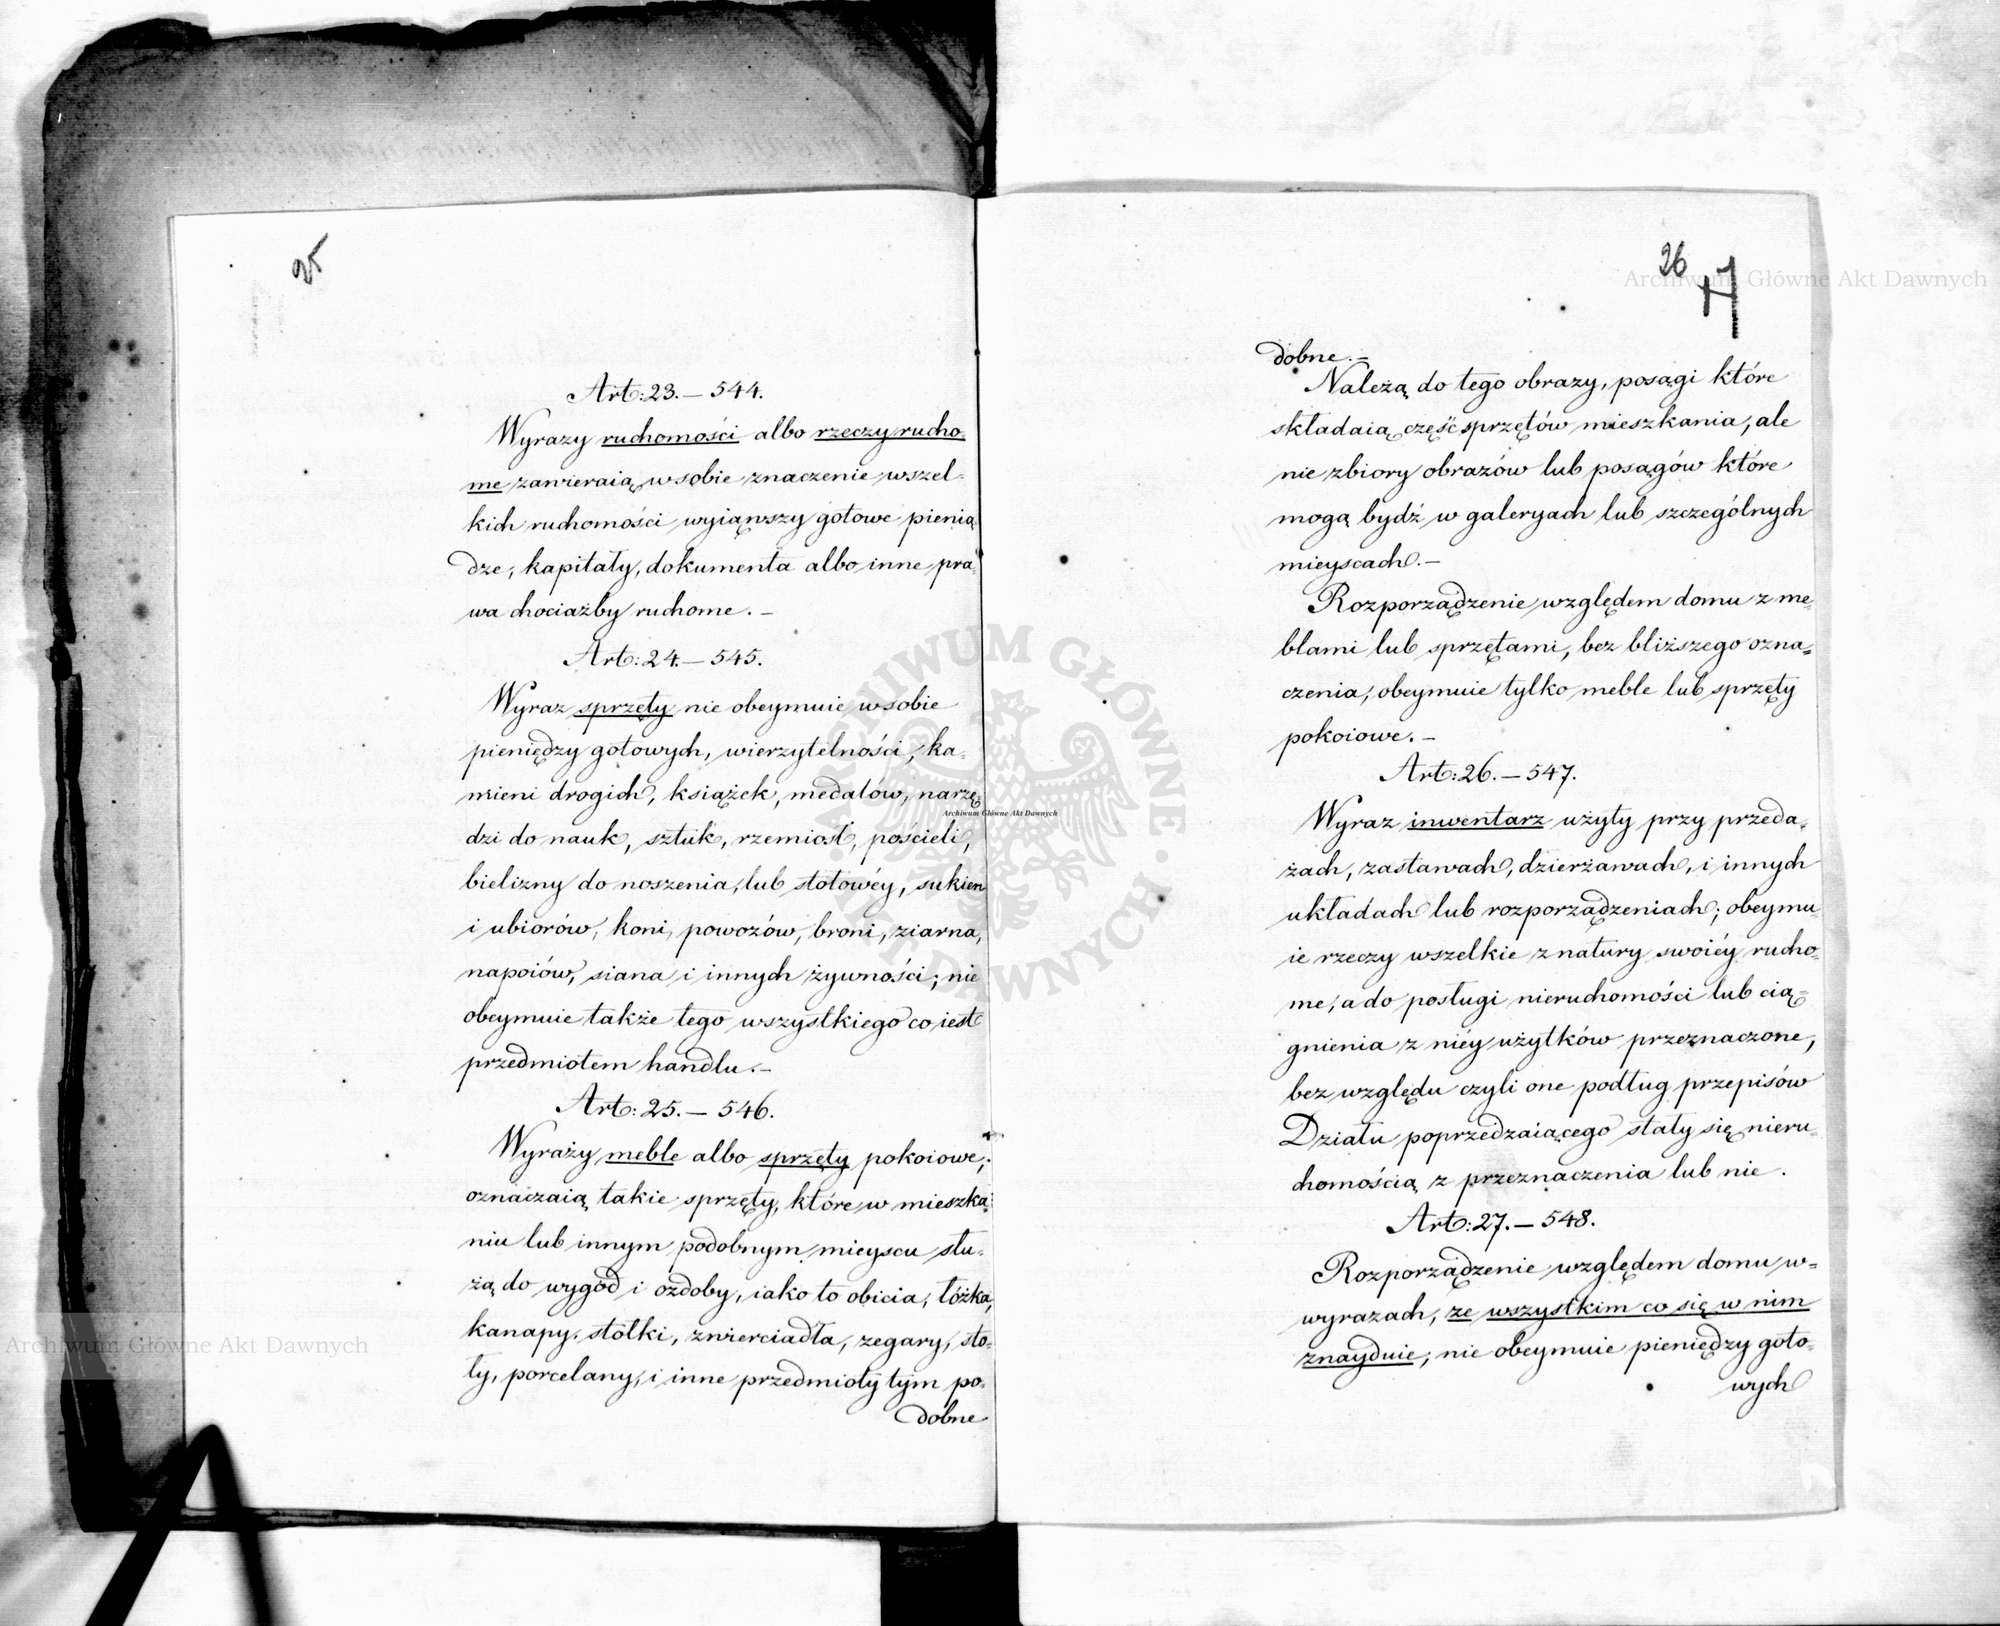 25
Art: 23. — 544.
Wyrazy ruchomości albo rzeczy rucho-
me zawieraią w sobie znaczenie wszel-
kich ruchomości wyiąwszy gotowe pienią
dze, kapitały, dokumenta albo inne pra-
wa chociażby ruchome. —
Art: 24. — 545.
Wyraz sprzęty nie obeymuie w sobie
pieniędzy gotowych, wierzytelności, ka-
mieni drogich, książek, medalów, narzę-
dzi do nauk, sztuk, rzemiosł, pościeli,
bielizny do noszenia, lub stołowéy, sukien
i ubiorów, koni, powozów, broni, ziarna,
napoiów, siana i innych żywności; nie
obeymuie także tego wszystkiego co iest
przedmiotem handlu. —
Art: 25. — 546.
Wyrazy meble albo sprzęty pokoiowe,
oznaczaią takie sprzęty, które w mieszka-
niu lub innym podobnym mieyscu słu-
żą do wygód i ozdoby, iako to obicia, łóżka,
kanapy, stołki, zwierciadła, zegary, sto-
ły, porcelany, i inne przedmioty tym po-
dobne
26
dobne. —
Należą do tego obrazy, posągi które
składaią część sprzętów mieszkania, ale
nie zbiory obrazów lub posągów które
mogą bydź w galeryach lub szczególnych
mieyscach. —
Rozporządzenie względem domu z me-
blami lub sprzętami, bez bliższego ozna-
czenia, obeymuie tylko meble lub sprzęty
pokoiowe. —
Art: 26. — 547.
Wyraz inwentarz użyty przy przeda-
żach, zastawach, dzierżawach, i innych
układach lub rozporządzeniach; obeymu-
ie rzeczy wszelkie z natury swoiéy rucho-
me, a do posługi nieruchomości lub cią-
gnienia z niéy użytków przeznaczone,
bez względu czyli one podług przepisów
Działu poprzedzaiącego stały się nieru-
chomością z przeznaczenia lub nie.
Art: 27. — 548.
Rozporządzenie względem domu w-
wyrazach, ze wszystkim co się w nim
znayduie, nie obeymuie pieniędzy goto-
wych
Archiwum Główne Akt Dawnych
Archiwum Główne Akt Dawnych
Archiwum Główne Akt Dawnych
ARCHIWUM GŁÓWNE · AKT DAWNYCH ·